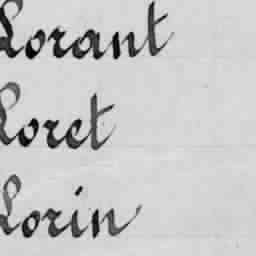 Lorant
Loret
Lorin